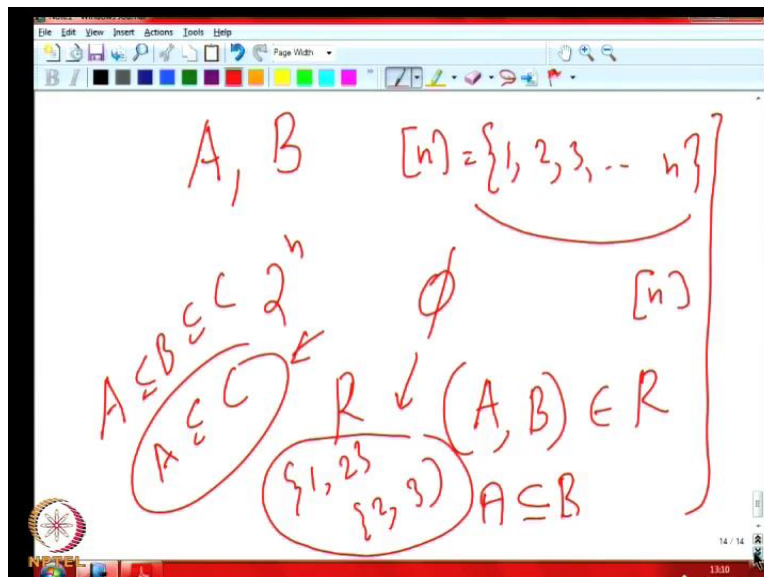 File Edit View Insert Actions Tools Help
Page Width
B I
A, B [n] = {1, 2, 3, ... n}
A ⊆ B ⊆ C 2^n ϕ [n]
A ⊆ C R (A, B) ∈ R
{1, 2}
{2, 3) A ⊆ B
14 / 14
NPTEL
13:10